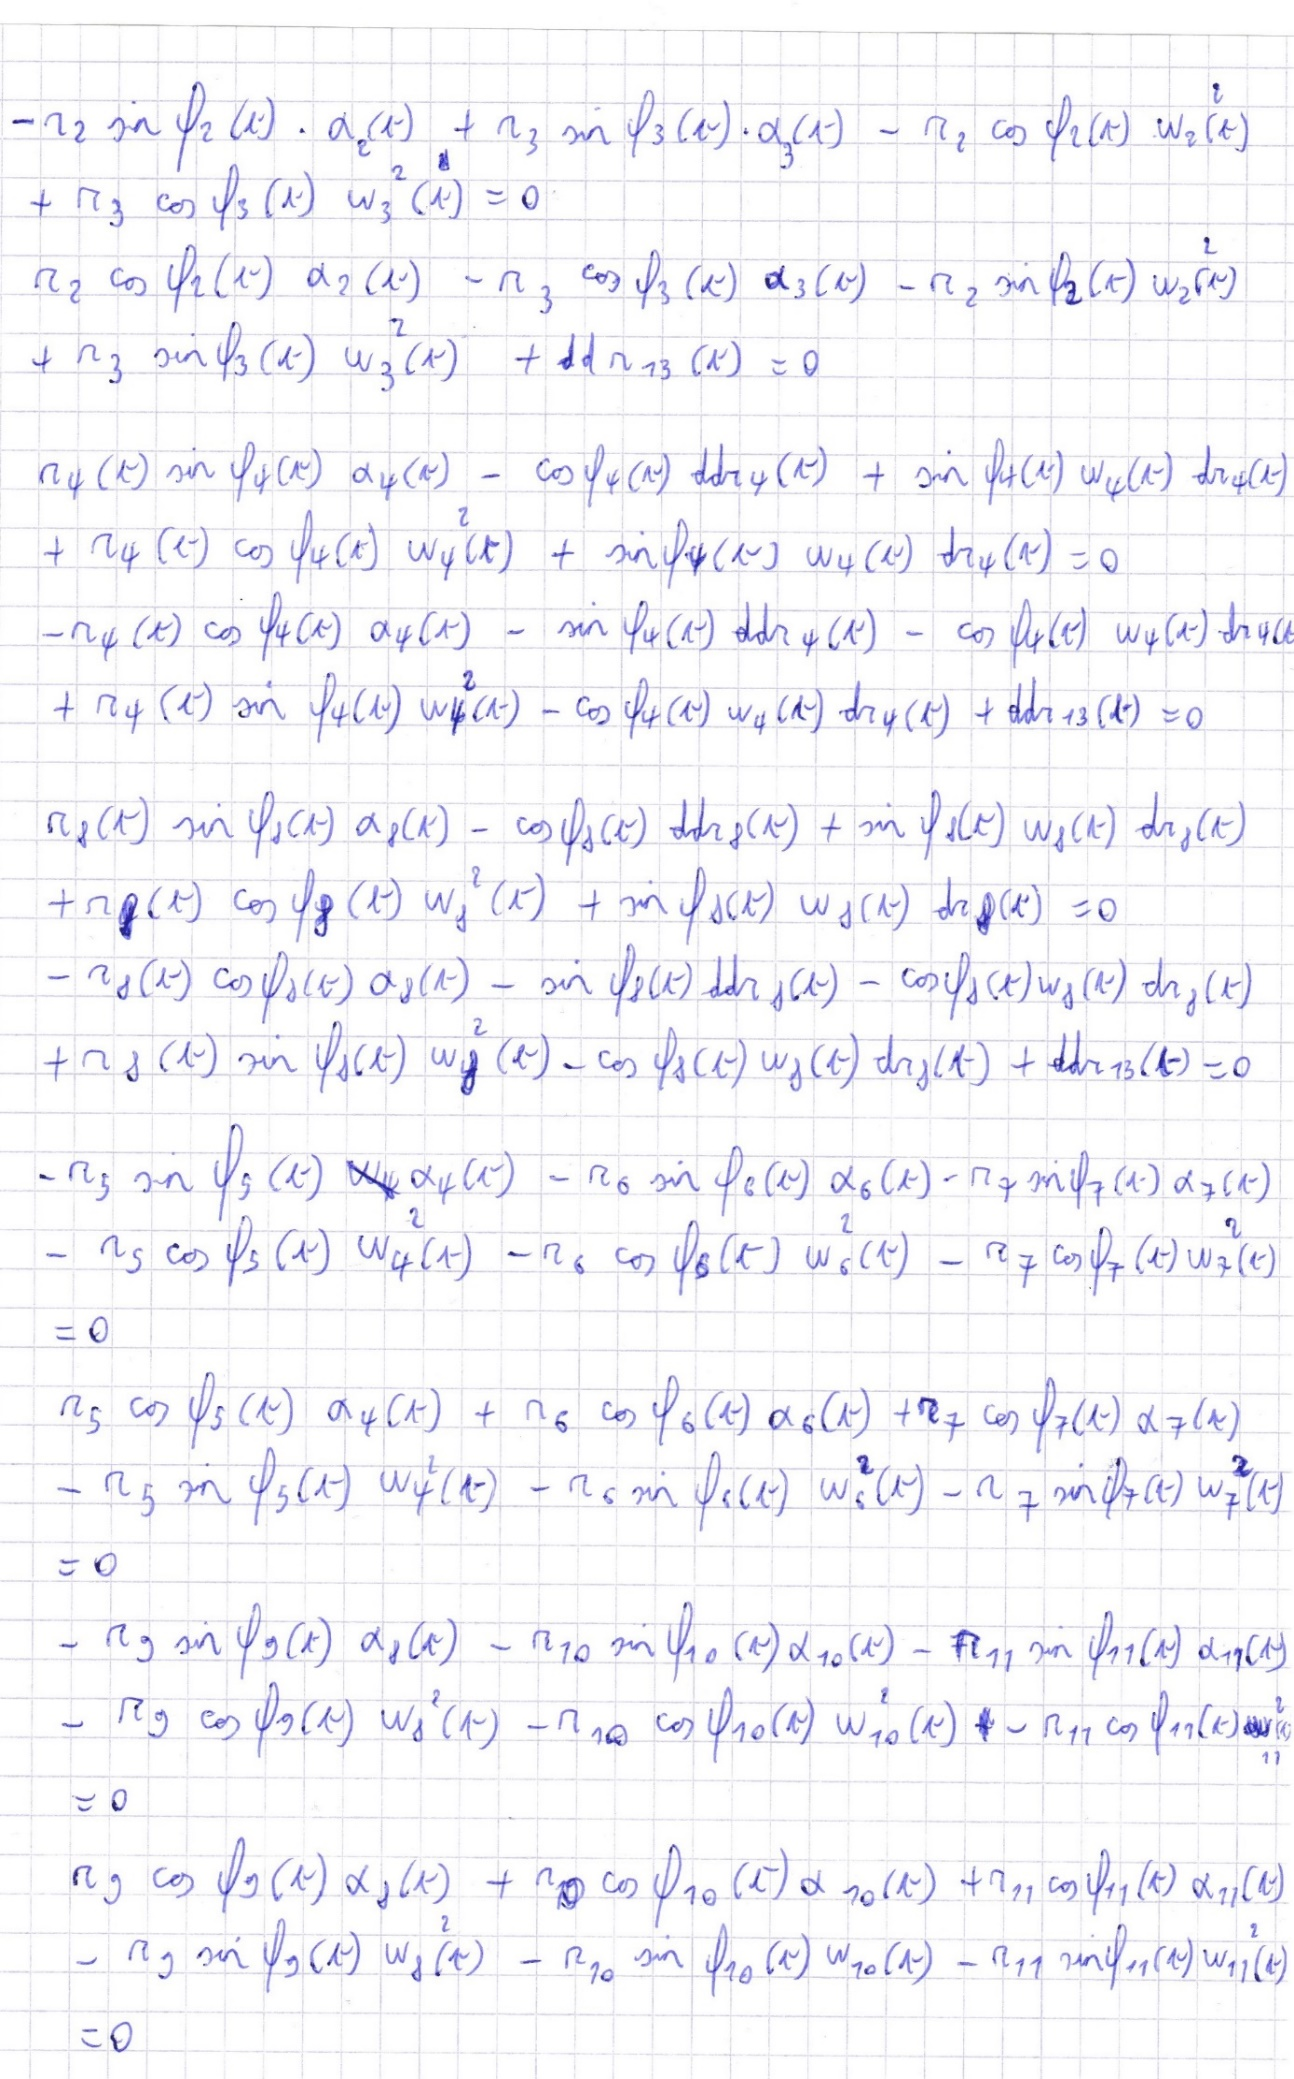 -r₂ sin φ₂(t) · α₂(t) + r₃ sin φ₃(t) · α₃(t) - r₂ cos φ₂(t) w₂²(t)
+ r₃ cos φ₃(t) w₃²(t) = 0
r₂ cos φ₂(t) α₂(t) - r₃ cos φ₃(t) α₃(t) - r₂ sin φ₂(t) w₂²(t)
+ r₃ sin φ₃(t) w₃²(t) + ddr₁₃(t) = 0
r₄(t) sin φ₄(t) α₄(t) - cos φ₄(t) ddr₄(t) + sin φ₄(t) w₄(t) dr₄(t)
+ r₄(t) cos φ₄(t) w₄²(t) + sin φ₄(t) w₄(t) dr₄(t) = 0
-r₄(t) cos φ₄(t) α₄(t) - sin φ₄(t) ddr₄(t) - cos φ₄(t) w₄(t) dr₄(t
+ r₄(t) sin φ₄(t) w₄²(t) - cos φ₄(t) w₄(t) dr₄(t) + ddr₁₃(t) = 0
r₈(t) sin φ₈(t) α₈(t) - cos φ₈(t) ddr₈(t) + sin φ₈(t) w₈(t) dr₈(t)
+ r₈(t) cos φ₈(t) w₈²(t) + sin φ₈(t) w₈(t) dr₈(t) = 0
- r₈(t) cos φ₈(t) α₈(t) - sin φ₈(t) ddr₈(t) - cos φ₈(t) w₈(t) dr₈(t)
+ r₈(t) sin φ₈(t) w₈²(t) - cos φ₈(t) w₈(t) dr₈(t) + ddr₁₃(t) = 0
- r₅ sin φ₅(t) α₄(t) - r₆ sin φ₆(t) α₆(t) - r₇ sin φ₇(t) α₇(t)
- r₅ cos φ₅(t) w₄²(t) - r₆ cos φ₆(t) w₆²(t) - r₇ cos φ₇(t) w₇²(t)
= 0
r₅ cos φ₅(t) α₄(t) + r₆ cos φ₆(t) α₆(t) + r₇ cos φ₇(t) α₇(t)
- r₅ sin φ₅(t) w₄²(t) - r₆ sin φ₆(t) w₆²(t) - r₇ sin φ₇(t) w₇²(t)
= 0
- r₉ sin φ₉(t) α₈(t) - r₁₀ sin φ₁₀(t) α₁₀(t) - r₁₁ sin φ₁₁(t) α₁₁(t)
- r₉ cos φ₉(t) w₈²(t) - r₁₀ cos φ₁₀(t) w₁₀²(t) - r₁₁ cos φ₁₁(t) w₁₁²(t)
= 0
r₉ cos φ₉(t) α₈(t) + r₁₀ cos φ₁₀(t) α₁₀(t) + r₁₁ cos φ₁₁(t) α₁₁(t)
- r₉ sin φ₉(t) w₈²(t) - r₁₀ sin φ₁₀(t) w₁₀(t) - r₁₁ sin φ₁₁(t) w₁₁²(t)
= 0